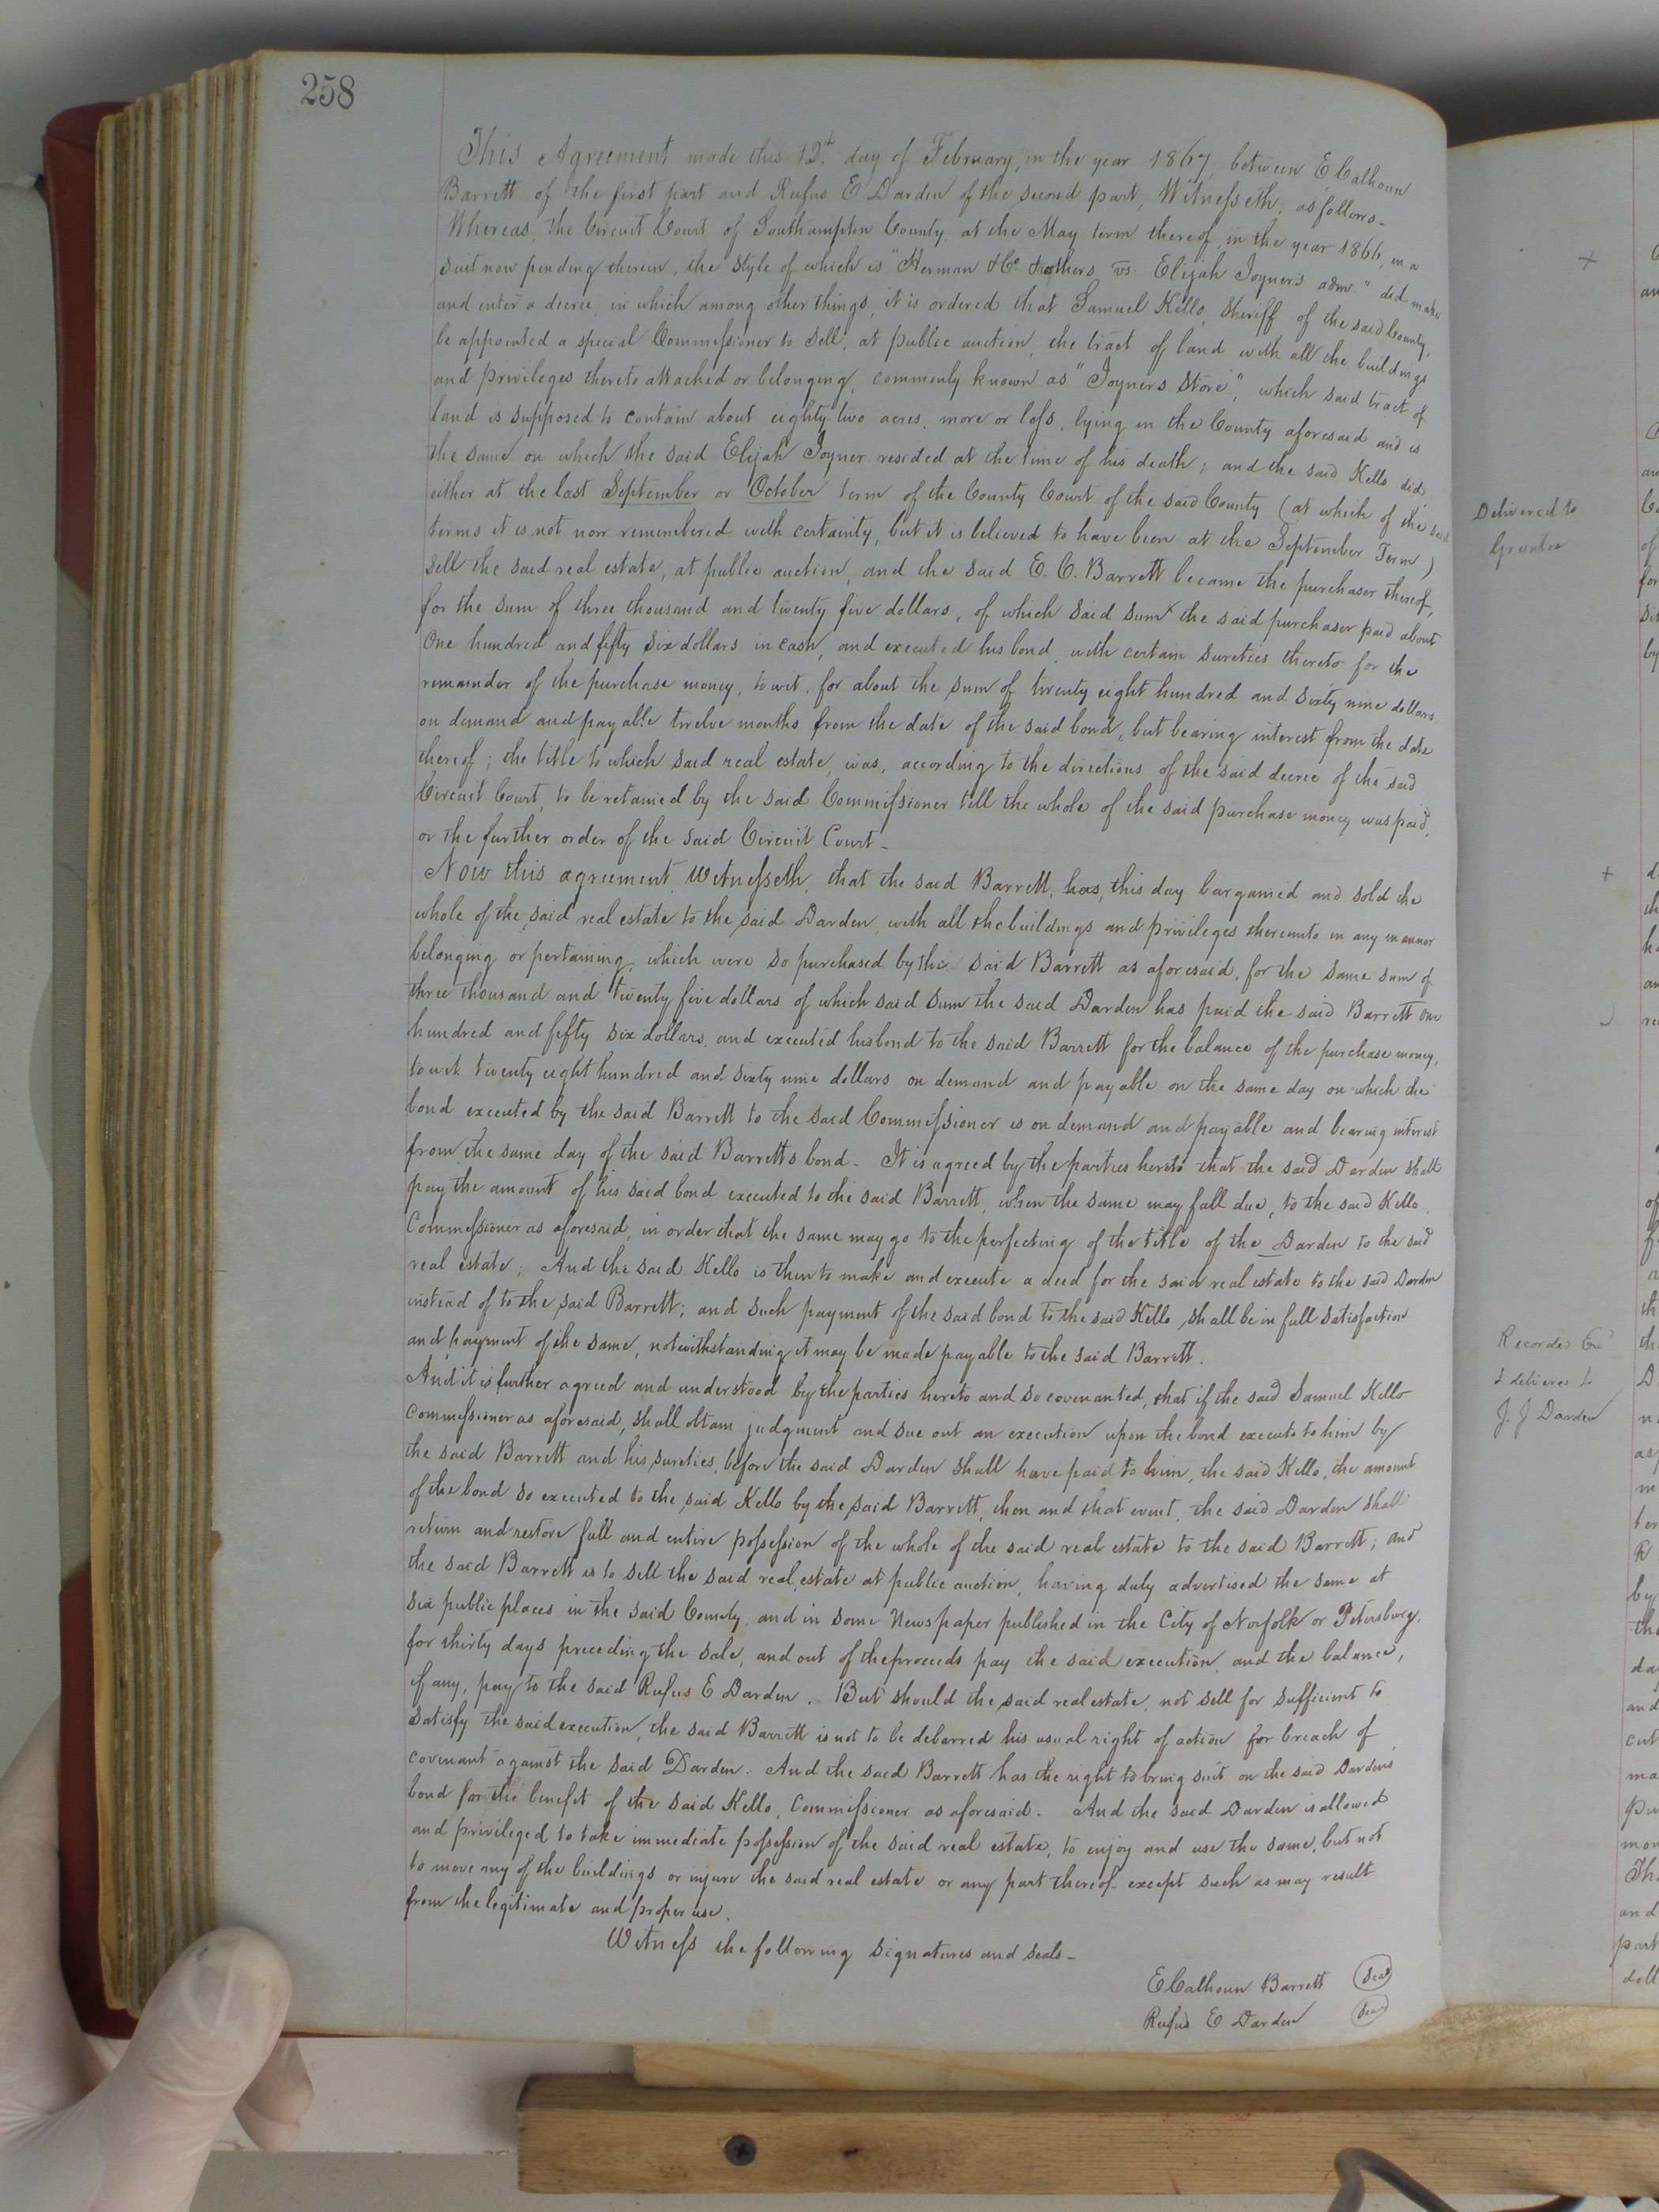 258
This Agreement made this 12th day of February, in the year 1867, between E Calhoun
Barrett of the first part and Rufus E Darden of the second part, Witnesseth, as follows -
Whereas, the Circuit Court of Southampton County, at the May term thereof, in the year 1866, in a
suit now pending therein, the style of which is "Herman & Co & others vs. Elijah Joyner's adm." did make
and enter a decree in which among other things, it is ordered that Samuel Kello, Sheriff of the said County,
be appointed a special Commissioner to sell, at public auction, the tract of land with all the buildings
and privileges thereto attached or belonging, commonly known as "Joyners Store", which said tract of
land is supposed to contain about eighty-two acres, more or less, lying in the County aforesaid and is
the same on which the said Elijah Joyner resided at the time of his death; and the said Kello did,
either at the last September or October term of the County Court of the said County (at which of the said
terms it is not now remembered with certainty, but it is believed to have been at the September Term)
sell the said real estate, at public auction, and the said E. C. Barrett became the purchaser thereof,
for the sum of three thousand and twenty five dollars, of which said sum the said purchaser paid about
One hundred and fifty six dollars in cash, and executed his bond with certain sureties thereto for the
remainder of the purchase money, towit. for about the sum of twenty eight hundred and sixty nine dollars,
on demand and payable twelve months from the date of the said bond, but bearing interest from the date
thereof; the title to which said real estate, was, according to the directions of the said decree of the said
Circuit Court, to be retained by the said Commissioner till the whole of the said purchase money was paid,
or the further order of the said Circuit Court -
Now this agreement, Witnesseth, that the said Barrett, has, this day bargained and sold the
whole of the said real estate to the said Darden, with all the buildings and privileges thereunto in any manner
belonging or pertaining, which were so purchased by the said Barrett as aforesaid, for the same sum of
three thousand and twenty five dollars of which said sum the said Darden has paid the said Barrett one
hundred and fifty six dollars, and executed his bond to the said Barrett for the balance of the purchase money,
towit twenty eight hundred and sixty nine dollars on demand and payable on the same day on which the
bond executed by the said Barrett to the said Commissioner is on demand and payable and bearing interest
from the same day of the said Barretts bond - It is agreed by the parties hereto that the said Darden shall
pay the amount of his said bond executed to the said Barrett, when the same may fall due, to the said Kello.
Commissioner as aforesaid, in order that the same may go to the perfecting of the title of the _ Darden to the said
real estate; And the said Kello is then to make and execute a deed for the said real estate to the said Darden
instead of to the said Barrett; and such payment of the said bond to the said Kello, shall be in full satisfaction
and payment of the same, notwithstanding it may be made payable to the said Barrett.
And it is further agreed and understood by the parties hereto and so covenanted, that if the said Samuel Kello
Commissioner as aforesaid, shall obtain judgment and sue out an execution upon the bond execute to him by
the said Barrett and his sureties, before the said Darden shall have paid to him, the said Kello, the amount
of the bond so executed to the said Kello by the said Barrett, then and that event, the said Darden shall
return and restore full and entire possession of the whole of the said real estate to the said Barrett; and
the said Barrett is to sell the said real estate at public auction, having duly advertised the same at
six public places in the said County, and in some Newspaper published in the City of Norfolk or Petersburg,
for thirty days preceding the sale, and out of the proceeds pay the said execution, and the balance,
if any, pay to the said Rufus E Darden. But should the said real estate, not sell for sufficient to
satisfy the said execution, the said Barrett is not to be debarred his usual right of action for breach of
covenant against the said Darden. And the said Barrett has the right to bring suit on the said Dardens
bond for the benefit of the said Kello, Commissioner as aforesaid. And the said Darden is allowed
and privileged to take immediate possession of the said real estate, to enjoy and use the same, but not
to move any of the buildings or injure the said real estate or any part thereof except such as may result
from the legitimate and proper use.
Witness the following signatures and seals -
E Calhoun Barrett Seal
Rufus E Darden Seal
Delivered to
Grantee
Recorded
& delivered to
J. J Darden